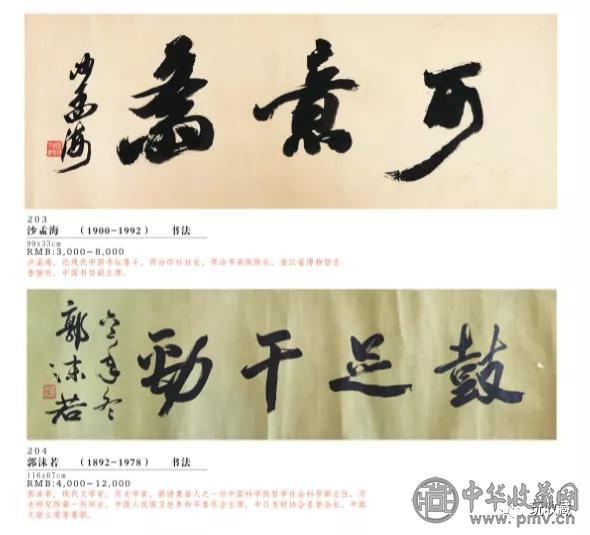 可意
沙孟海
203
沙孟海 (1900-1992) 书法
99x33cm
RMB:3,000-8,000
沙孟海，近现代中国书坛泰斗。西泠印社社长、西泠书画院院长、浙江省博物馆名
誉馆长、中国书协副主席。
鼓足干劲
年冬
郭沫若
204
郭沫若 (1892-1978) 书法
116x67cm
RMB:4,000-12,000
郭沫若，现代文学家、历史学家、新诗奠基人之一任中国科学院哲学社会科学部主任、历
史研究所第一所所长、中国人民保卫世界和平委员会主席、中日友好协会名誉会长、中国
文联主席等要职。
中华收藏网
www.pmv.cn